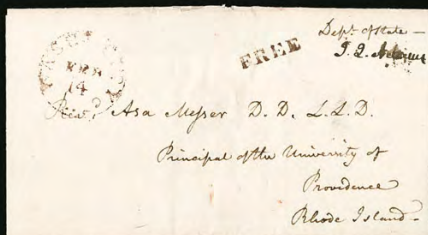 Dept. of State —
FREE
J. Q. Adams
FEB
14
Revd. Asa Messer D. D. L.L.D.
Principal of the University of
Providence
Rhode Island.